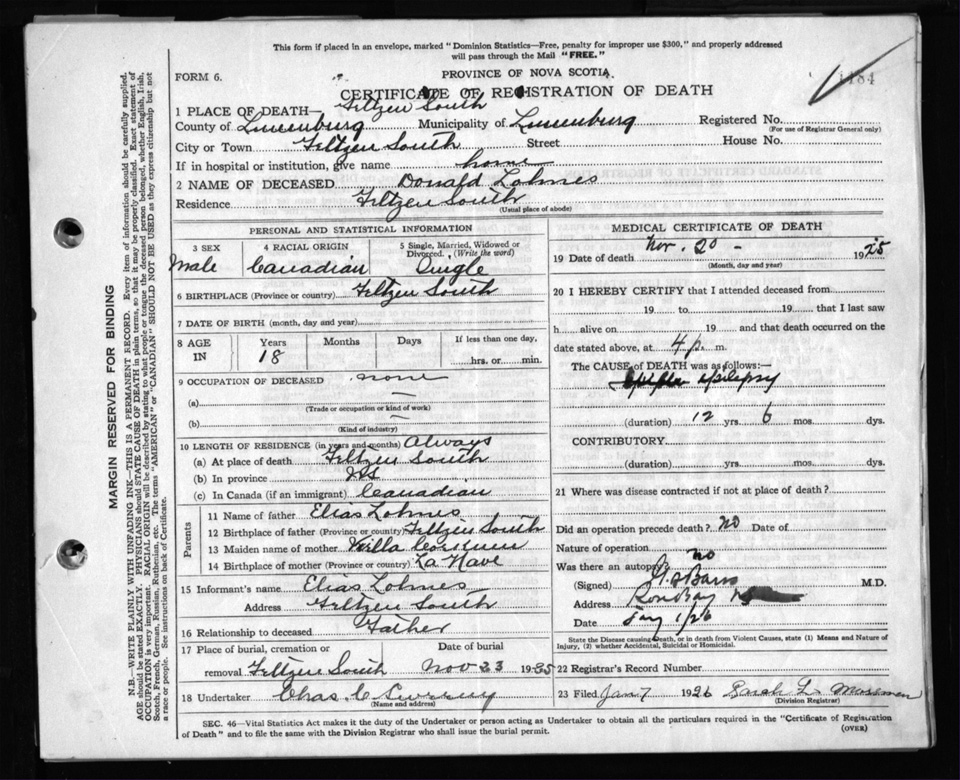 This form if placed in an envelope, marked "Dominion Statistics—Free, penalty for improper use $300," and properly addressed
will pass through the Mail "FREE."
FORM 6.
PROVINCE OF NOVA SCOTIA.
1484
CERTIFICATE OF REGISTRATION OF DEATH
1 PLACE OF DEATH— Feltzen South
County of Lunenburg Municipality of Lunenburg Registered No.
(For use of Registrar General only)
City or Town Feltzen South Street House No.
If in hospital or institution, give name home
2 NAME OF DECEASED Donald Lohnes
Residence Feltzen South
(Usual place of abode)
PERSONAL AND STATISTICAL INFORMATION
3 SEX 4 RACIAL ORIGIN 5 Single, Married, Widowed or
Divorced. (Write the word)
Male Canadian Single
6 BIRTHPLACE (Province or country) Feltzen South
7 DATE OF BIRTH (month, day and year)
8 AGE Years Months Days If less than one day,
IN 18 hrs. or min.
9 OCCUPATION OF DECEASED none
(a) —
(Trade or occupation or kind of work)
(b) —
(Kind of industry)
10 LENGTH OF RESIDENCE (in years and months) Always
(a) At place of death Feltzen South
(b) In province
(c) In Canada (if an immigrant) Canadian
Parents
11 Name of father Elias Lohnes
12 Birthplace of father (Province or country) Feltzen South
13 Maiden name of mother
14 Birthplace of mother (Province or country) La Have
15 Informant's name Elias Lohnes
Address Feltzen South
16 Relationship to deceased Father
17 Place of burial, cremation or Date of burial
removal Feltzen South Nov 23 19
18 Undertaker Chas C
(Name and address)
MEDICAL CERTIFICATE OF DEATH
19 Date of death Nov. 20 - 1925
(Month, day and year)
20 I HEREBY CERTIFY that I attended deceased from
19 to 19 that I last saw
h alive on 19 and that death occurred on the
date stated above, at 4 p. m.
The CAUSE of DEATH was as follows:—
epilepsy
(duration) 12 yrs. 6 mos. dys.
CONTRIBUTORY
(duration) yrs. mos. dys.
21 Where was disease contracted if not at place of death?
Did an operation precede death? no Date of
Nature of operation
Was there an autopsy no
(Signed) M.D.
Address
Date Jany 1/26
State the Disease causing Death, or in death from Violent Causes, state (1) Means and Nature of
Injury, (2) whether Accidental, Suicidal or Homicidal.
22 Registrar's Record Number
23 Filed Jan 7 1926 Sarah L. Mossman
(Division Registrar)
SEC. 46—Vital Statistics Act makes it the duty of the Undertaker or person acting as Undertaker to obtain all the particulars required in the "Certificate of Registration
of Death" and to file the same with the Division Registrar who shall issue the burial permit.
(OVER)
MARGIN RESERVED FOR BINDING
N.B.—WRITE PLAINLY WITH UNFADING INK—THIS IS A PERMANENT RECORD. Every item of information should be carefully supplied.
AGE should be stated EXACTLY. PHYSICIANS should STATE CAUSE OF DEATH in plain terms, so that it may be properly classified. Exact statement of
OCCUPATION is very important. RACIAL ORIGIN will be described by stating to what people or tongue the deceased person belonged, whether English, Irish,
Scotch, French, German, Russian, Ruthenian, etc. The terms "AMERICAN" or "CANADIAN" SHOULD NOT BE USED as they express citizenship but not
a race or people. See instructions on back of Certificate.